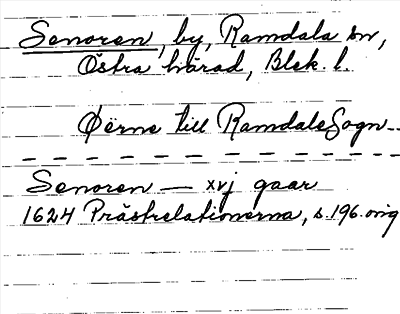 Senoren, by, Ramdala sn,
Östra härad, Blek. l.
Øerne till RamdaleSogn
Senoren — xvj gaar
1624 Prästrelationerna, s. 196. orig